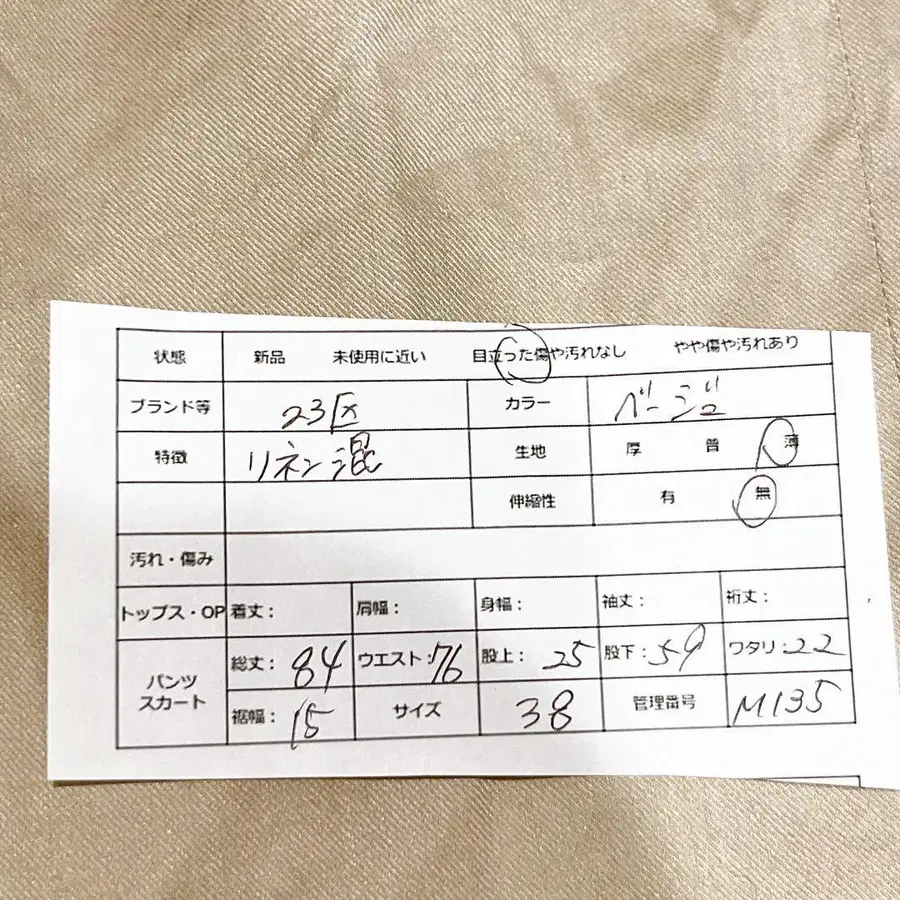 状態 新品 未使用に近い 目立った傷や汚れなし やや傷や汚れあり
ブランド等 23区 カラー ベージュ
特徴 リネン混 生地 厚 普 薄
伸縮性 有 無
汚れ・傷み
トップス・OP 着丈: 肩幅: 身幅: 袖丈: 裄丈:
パンツ スカート 総丈: 84 ウエスト: 76 股上: 25 股下: 59 ワタリ: 22
裾幅: 15 サイズ 38 管理番号 M135